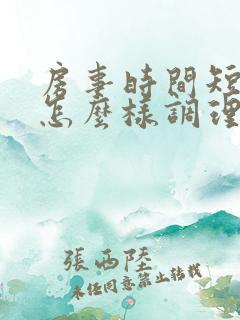 房事時間短
怎麼樣調理
張西陸
未任同意禁止转载